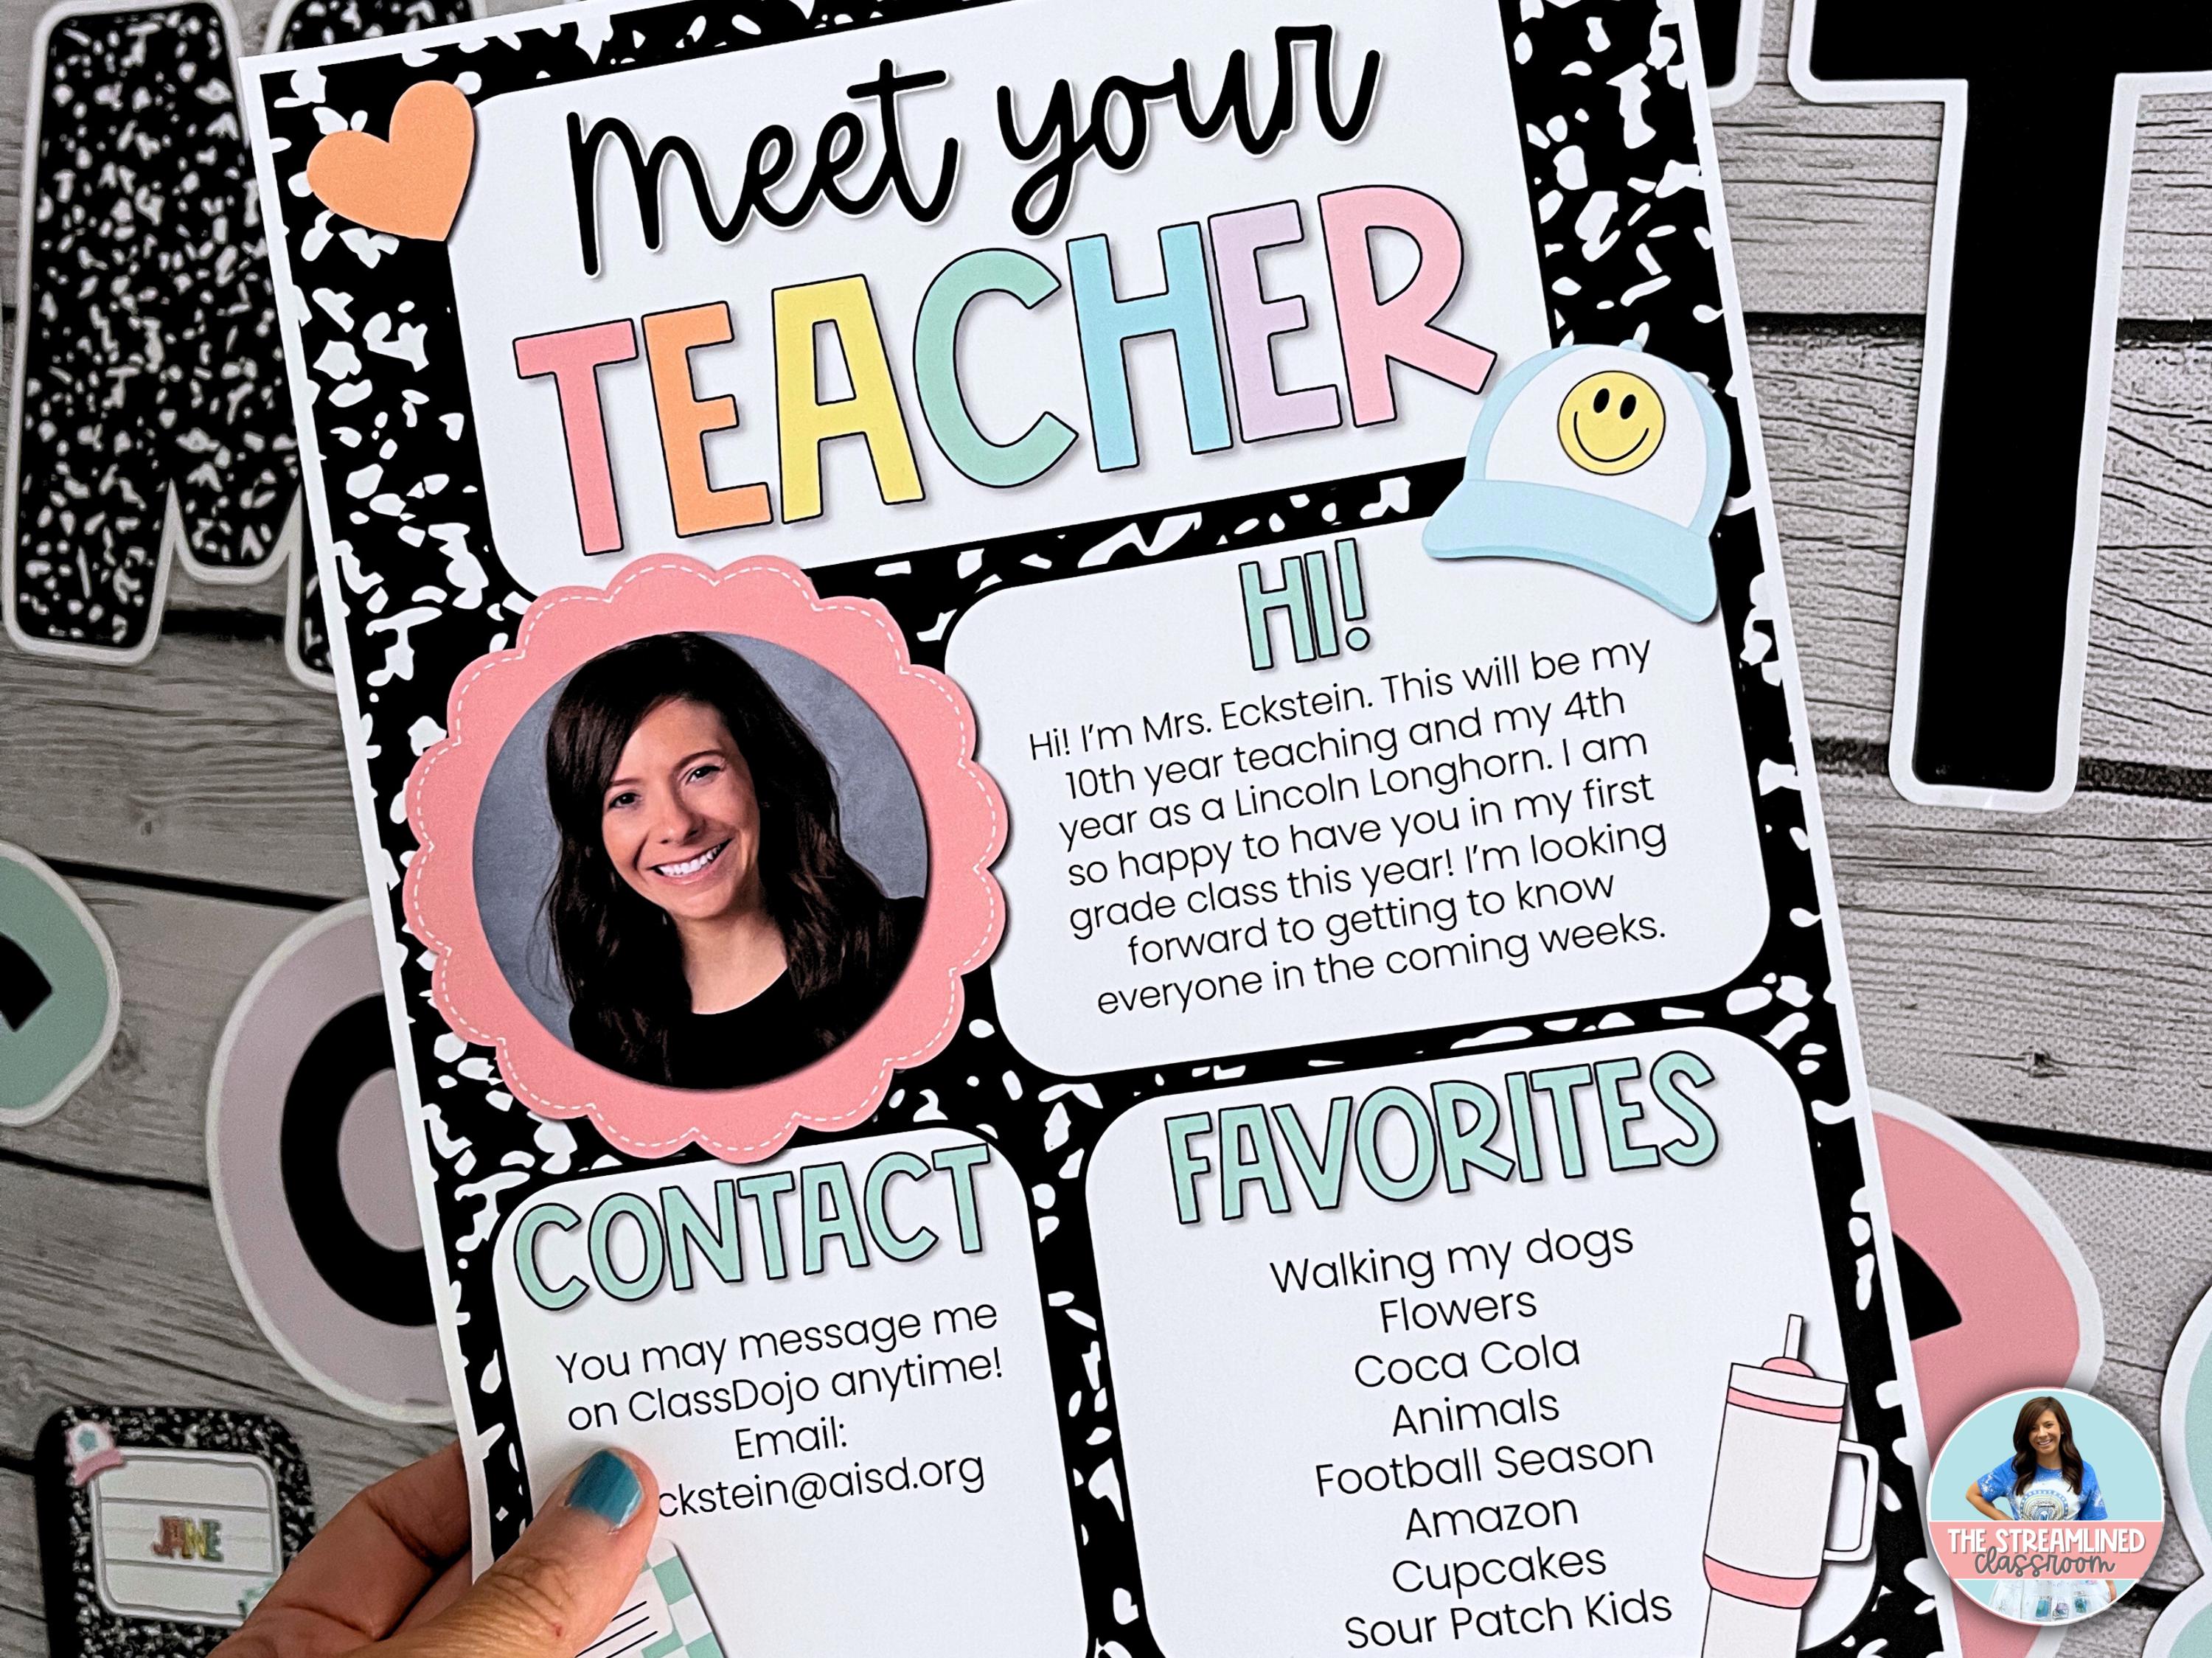 meet your
TEACHER
HI!
Hi! I'm Mrs. Eckstein. This will be my
10th year teaching and my 4th
year as a Lincoln Longhorn. I am
so happy to have you in my first
grade class this year! I'm looking
forward to getting to know
everyone in the coming weeks.
CONTACT
You may message me
on ClassDojo anytime!
Email:
ckstein@aisd.org
FAVORITES
Walking my dogs
Flowers
Coca Cola
Animals
Football Season
Amazon
Cupcakes
Sour Patch Kids
JANE
THE STREAMLINED
classroom